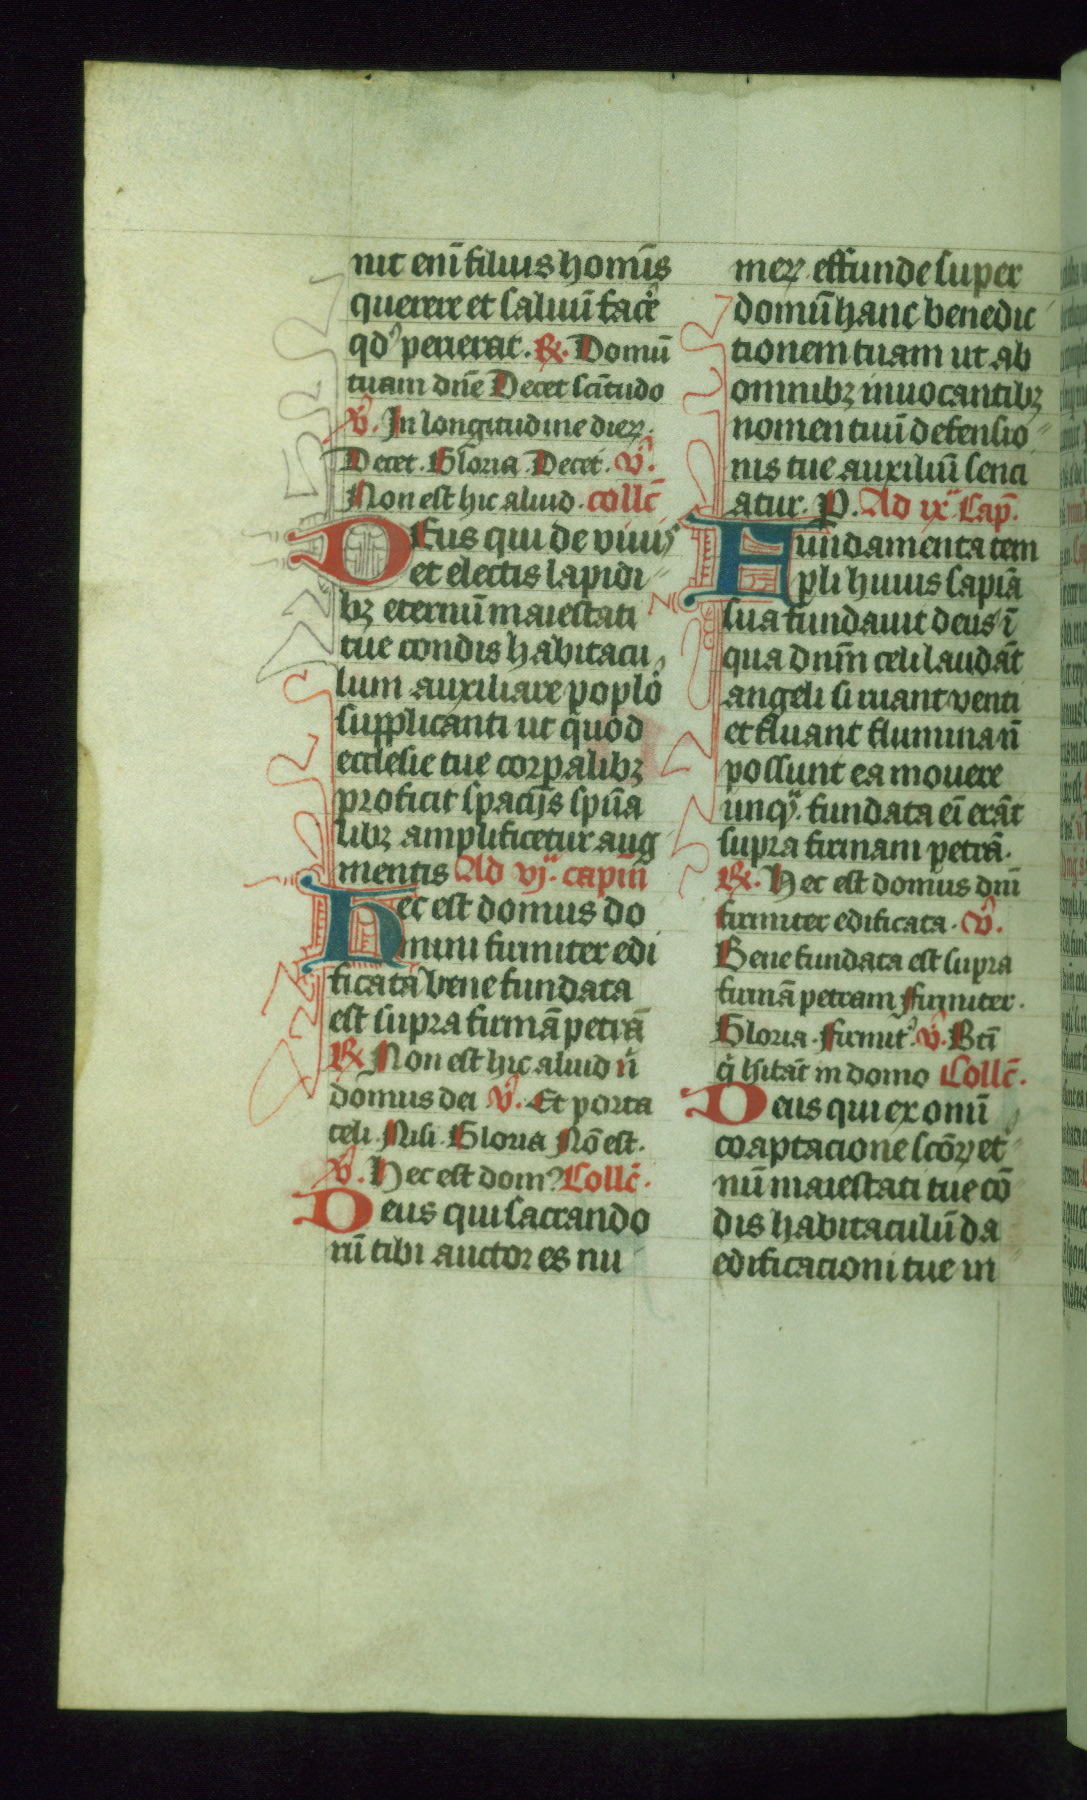 nit eni̅ filius homi̅s
querere et saluu̅ face̅
qd̕ perierat. R̷. Domu̅
tuam dn̅e Decet sc̅itudo
V̕. In longitudine dieꝝ.
Decet. Glo̅ria. Decet. V̕.
Non est hic aliud. collc̅
DEus qui de viuis
et electis lapidi
bꝫ eternu̅ maiestati
tue condis habitacu
lum auxiliare poplo̕
supplicanti ut quod
ecclesie tue corꝑalibꝫ
proficit spacijs spu̅a
libꝫ amplificetur aug
mentis Ad vjᵃ. capi̅m
Hec est domus do
mini firmiter edi
ficata bene fundata
est supra firma̅ petra̅
R̷ Non est hic aliud n̅
domus dei V̕. Et porta
celi. Nisi. Gloria No̅ est.
V̕. Hec est dom9 Collc̅.
Deus qui sacrando
ru̅ tibi auctor es nu
meꝝ effunde super
domu̅ hanc benedic
tionem tuam ut ab
omnibꝫ inuocantibꝫ
nomen tuu̅ defensio
nis tue auxiliu̅ senci
atur. P. Ad ixᵃ Cap̅.
Fundamenta tem
pli huius sapi̅a
sua fundauit deus i̅
qua dn̅m celi lauda̅t
angeli si ruant venti
et fluant flumina n̅
possunt ea mouere
unqᵃ. fundata ei̅ era̅t
supra firmam petra̅.
R̷. Hec est domus dn̅i
firmiter edificata. V̕.
Bene fundata est supra
firma̅ petram Firmiter.
Gloria. Firmit̕. V̕. Bt̅i
qͥ hi̅ta̅t in domo Collc̅.
Deus qui ex om̅i
coaptacione sco̅ꝝ et
nu̅ maiestati tue co̅
dis habitaculu̅ da
edificacioni tue in